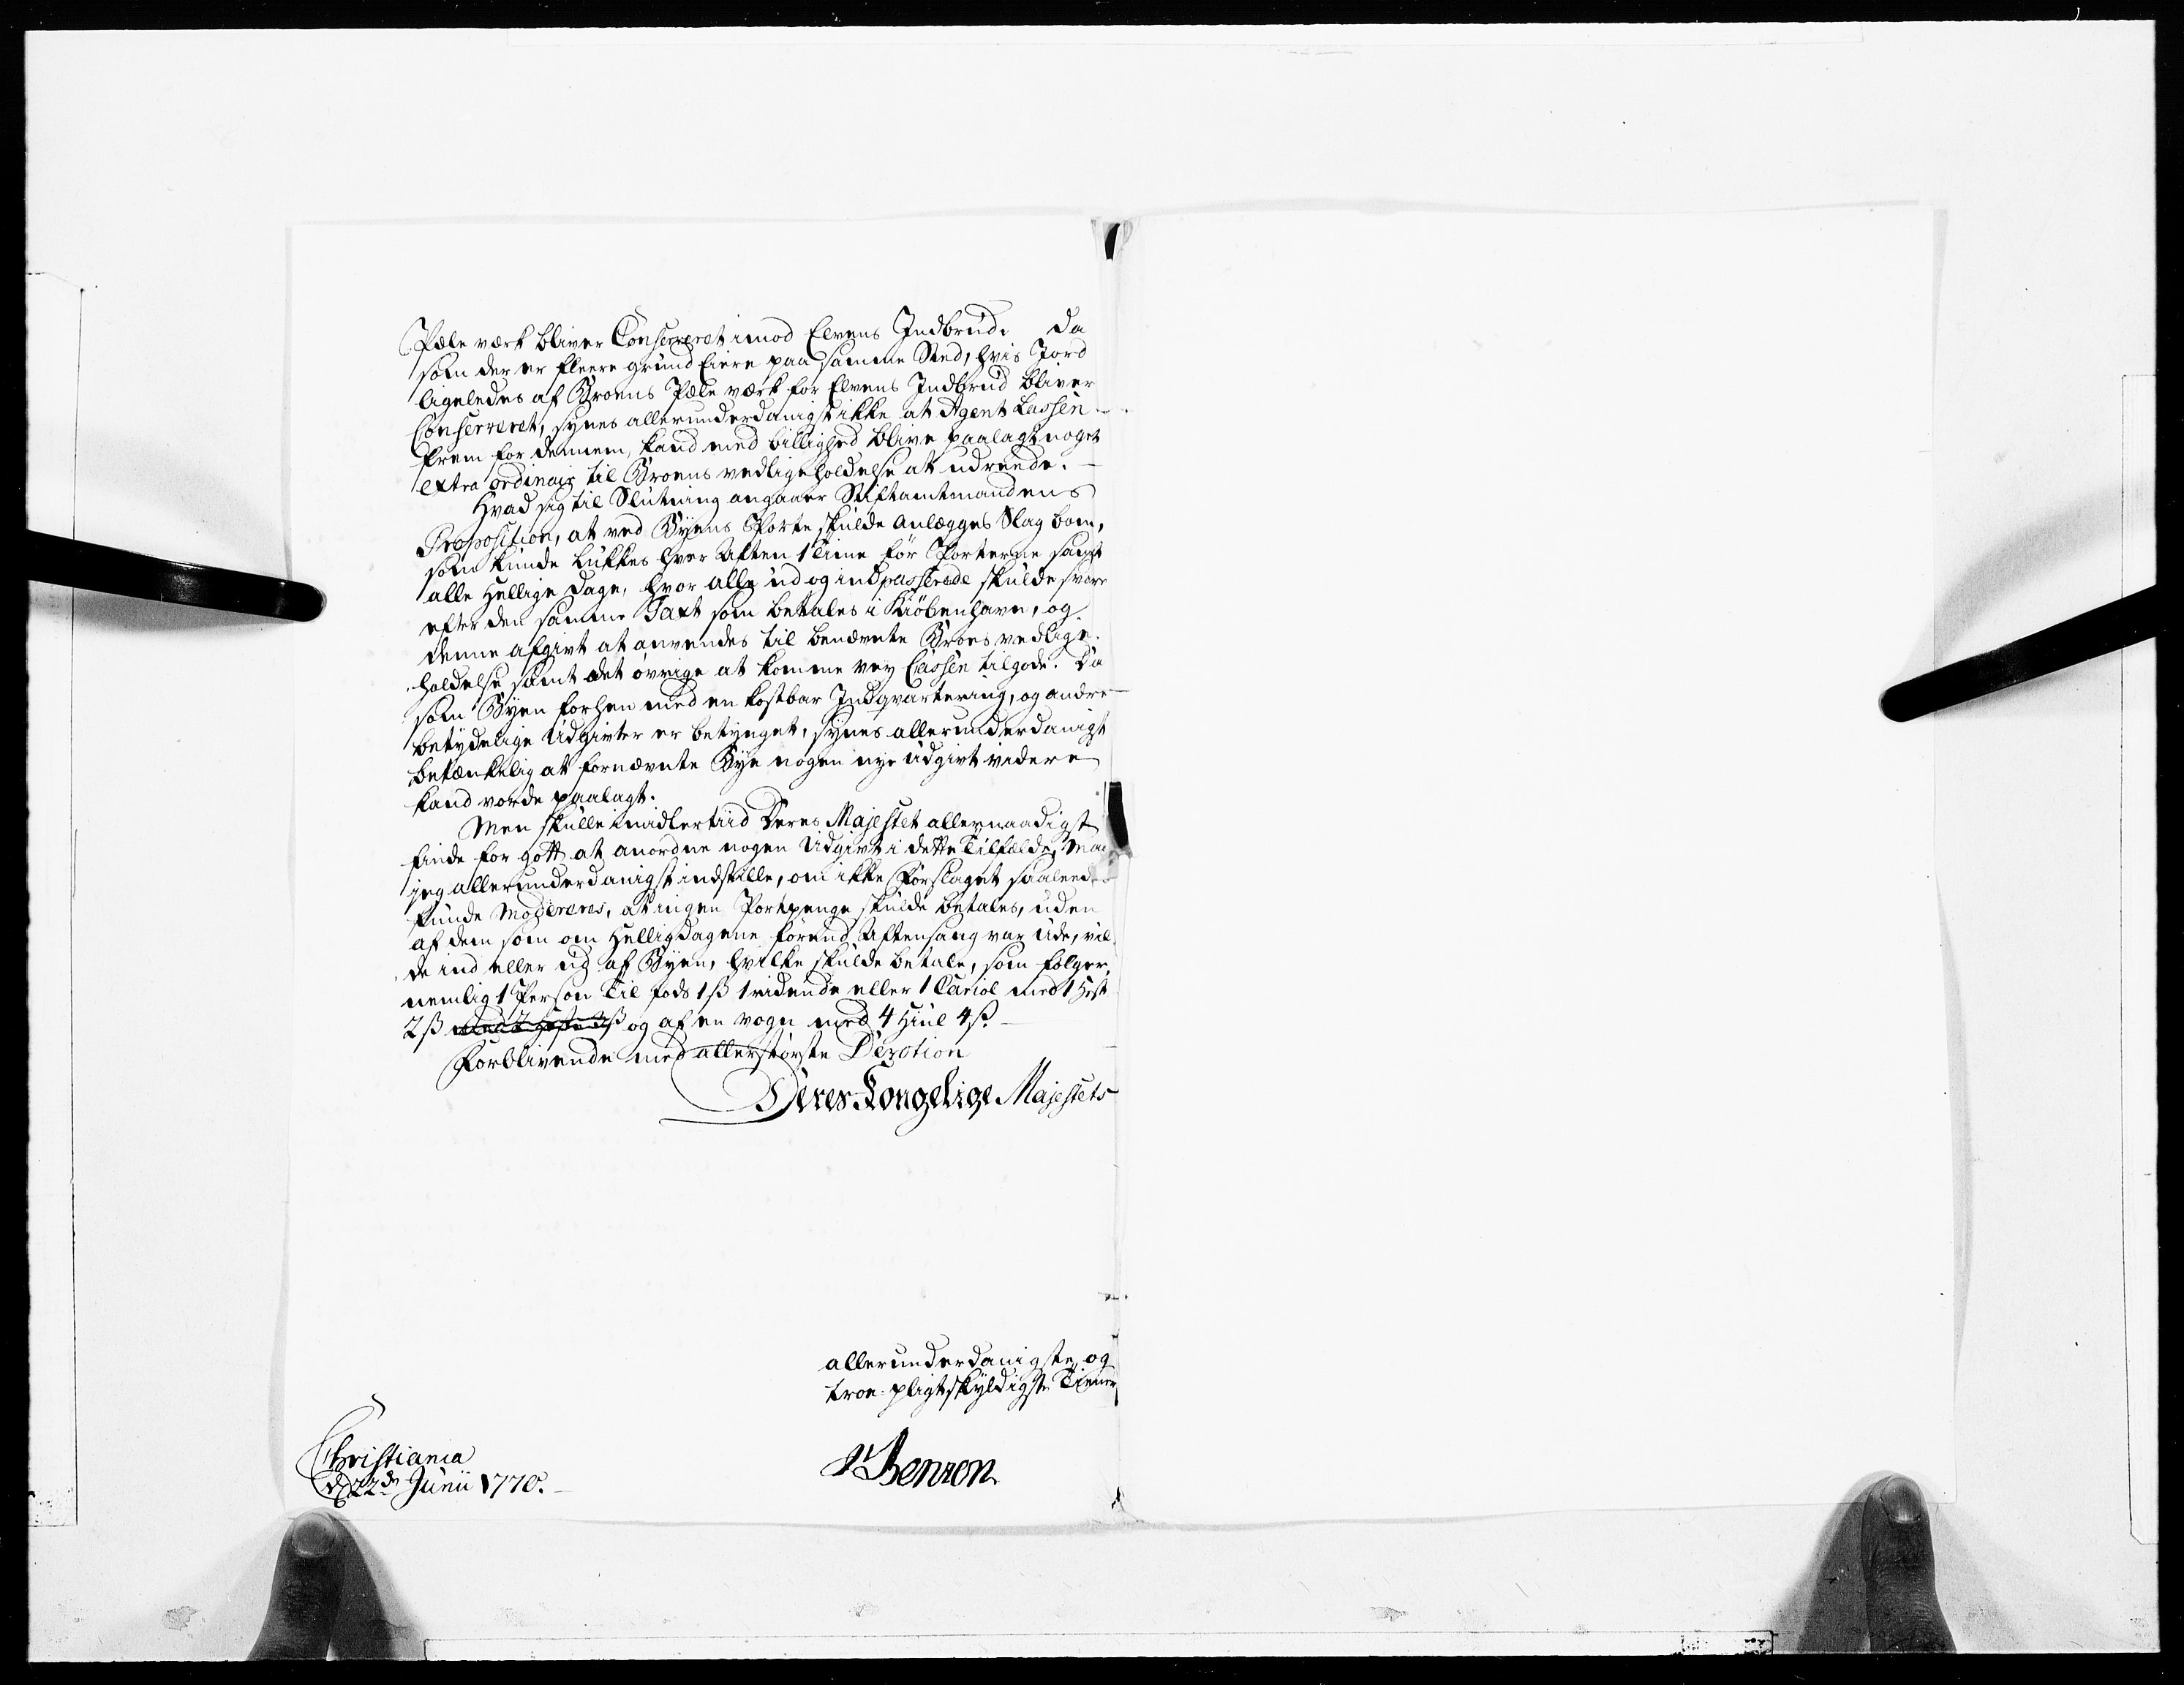 Pæle værk bliver Conserveret imod Elvens Indbrud. Da
som der er fleere grund Eiere paa samme Sted, hvis Jord
ligeledes af Broens Pæle værk for Elvens Indbrud bliver
Conserveret, synes allerunderdanigst ikke at Agent Lassen
frem for dennem, kand med billighed blive paalagt noget
extra ordinair til Broens vedligeholdelse at udreede.
Hvad sig til Slutning angaaer Stiftamtmandens
Proposition, at ved Byens Porte skulde anlægges Slag bom,
som kunde lukkes hver Aften 1 Time før Porterne samt
alle Hellige Dage, hvor alle ud og ind passerede skulde svare
efter den samme Taxt som betales i Kiøbenhavn, og
denne afgivt at anvendes til benævnte Broes vedlige-
holdelse samt det øvrige at komme vey Cassen tilgode. Da
som Byen forhen med en kostbar Indqvartering, og andre
betydelige Udgivter er betynget, synes allerunderdanigst
betænkelig at fornævnte Bye nogen nye udgivt videre
kand vorde paalagt.
Men skulle imidlertiid Deres Majestet allernaadigst
finde for gott at anordne nogen Udgivt i dette Tilfælde, maae
jeg allerunderdanigst indstille, om ikke Forslaget saaleedes
kunde modereres, at ingen Portpenge skulde betales, uden
af dem som om Helligdagene førend Aftensang var ude, vil-
de ind eller ud af Byen, hvilke skulde betale, som følger,
nemlig 1 Person Til fods 1 ß 1 ridende eller 1 Cariol med 1 Hest
2 ß og af en vogn med 4 Hiul 4 ß.
Forblivende med allerstørste Devotion
Deres Kongelige Majestets
allerunderdanigste og
troe pligtskyldigste Tiener
Benzon
Christiania
d 22de Junii 1770.